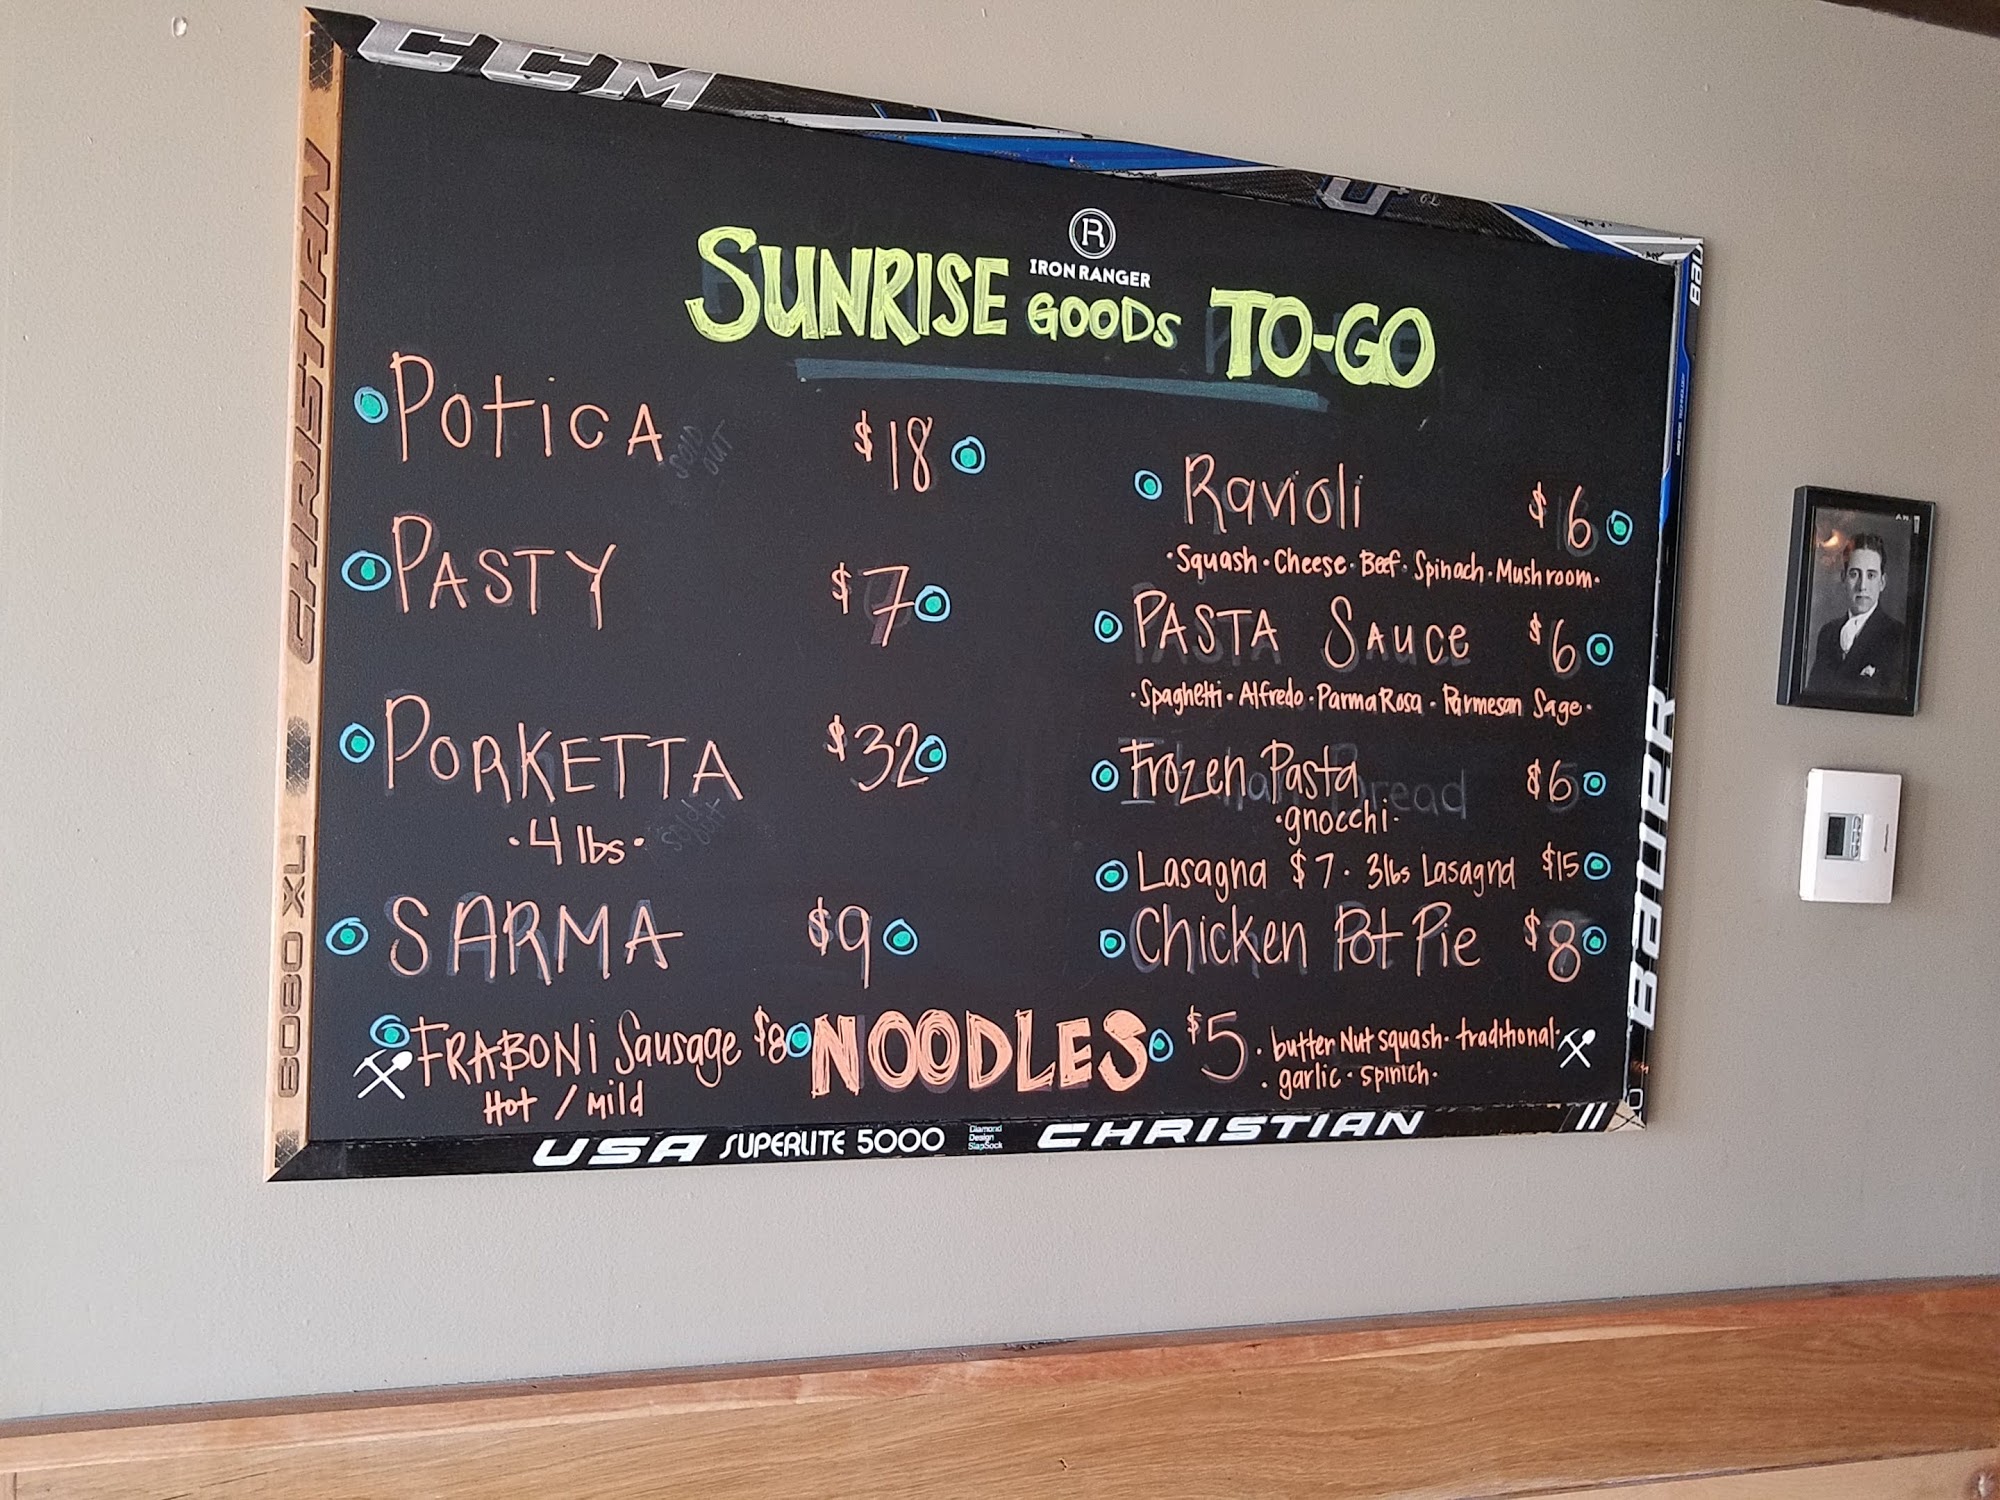 CCM
CHRISTIAN
8080 XL
R
IRON RANGER
SUNRISE GOODS TO-GO
POTICA $18
SOLD OUT
PASTY $7
PORKETTA $32
· 4 lbs ·
Sold out
SARMA $9
FRABONI Sausage $8
Hot / Mild
Ravioli $6
· Squash · Cheese · Beef · Spinach · Mushroom ·
PASTA SAUCE $6
· Spaghetti · Alfredo · Parma Rosa · Parmesan Sage ·
Frozen Pasta $6
· gnocchi ·
Lasagna $7 · 3lbs Lasagna $15
Chicken Pot Pie $8
NOODLES $5 · butter Nut squash · traditional ·
· garlic · spinich ·
BAUER
USA SUPERLITE 5000 Diamond Design SlapSock CHRISTIAN